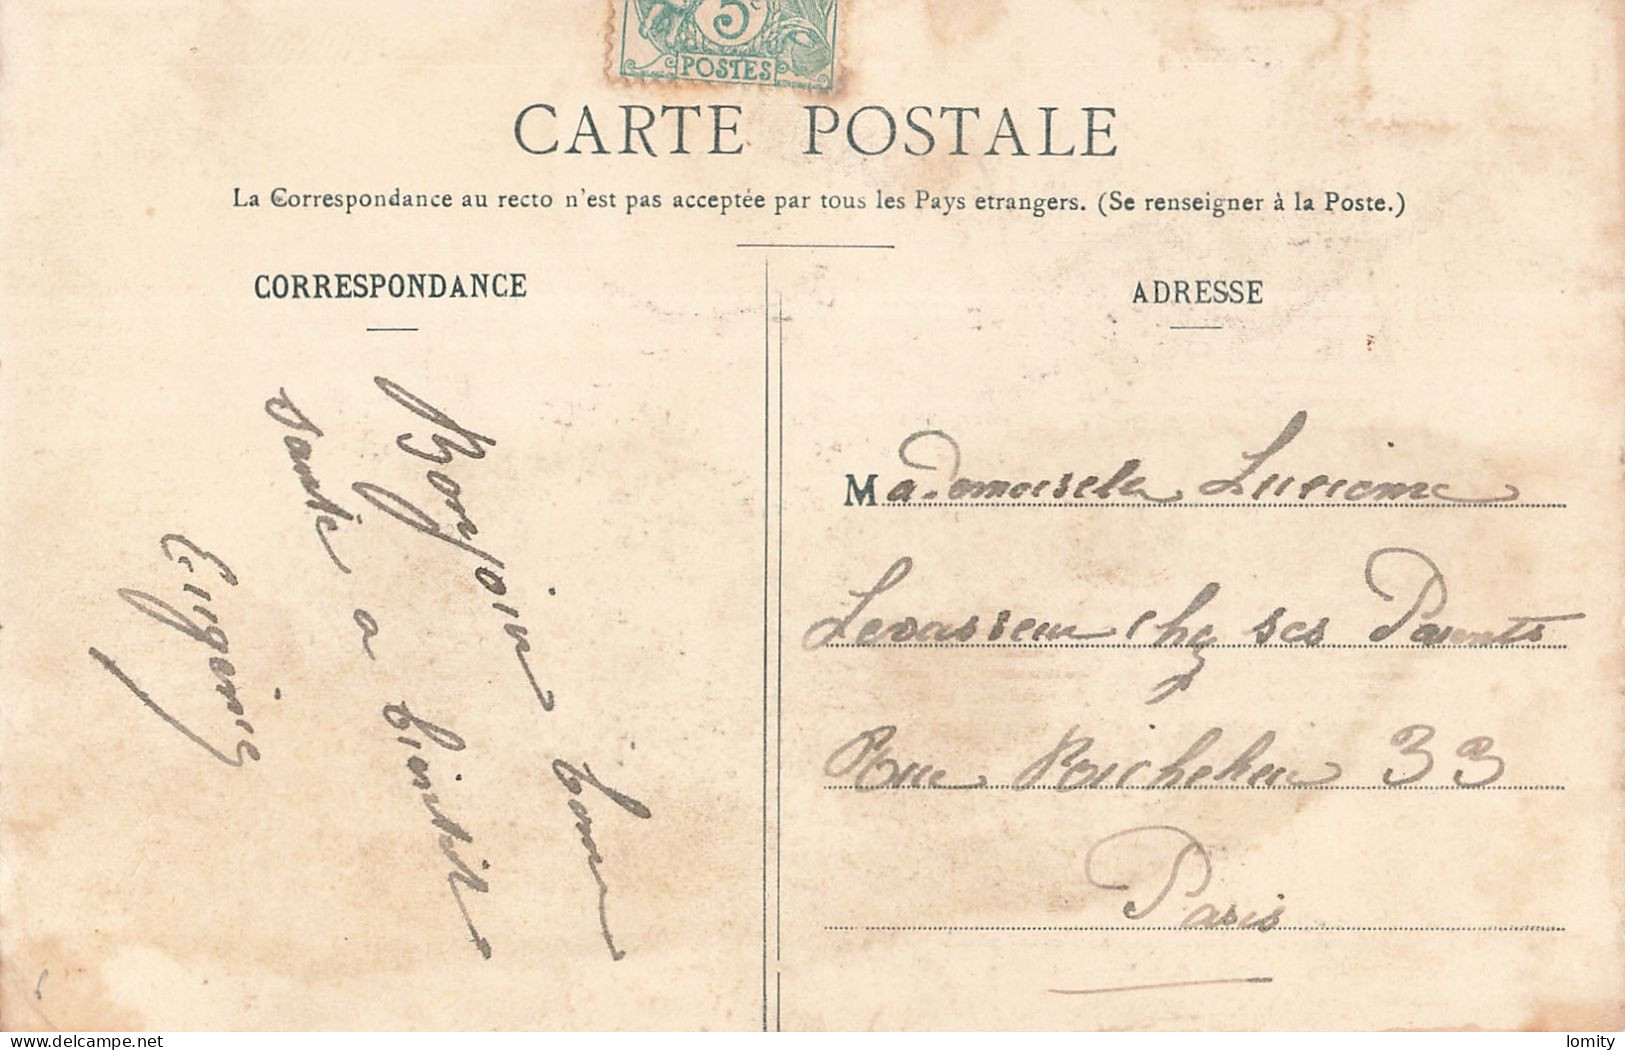 5c
POSTES
CARTE POSTALE
La Correspondance au recto n'est pas acceptée par tous les Pays etrangers. (Se renseigner à la Poste.)
CORRESPONDANCE
Bonjoin bonne
santé a bientôt
Eugenie
ADRESSE
Mademoiselle Lucienne
Levasseur chez ses Parents
Rue Richelieu 33
Paris
lomity